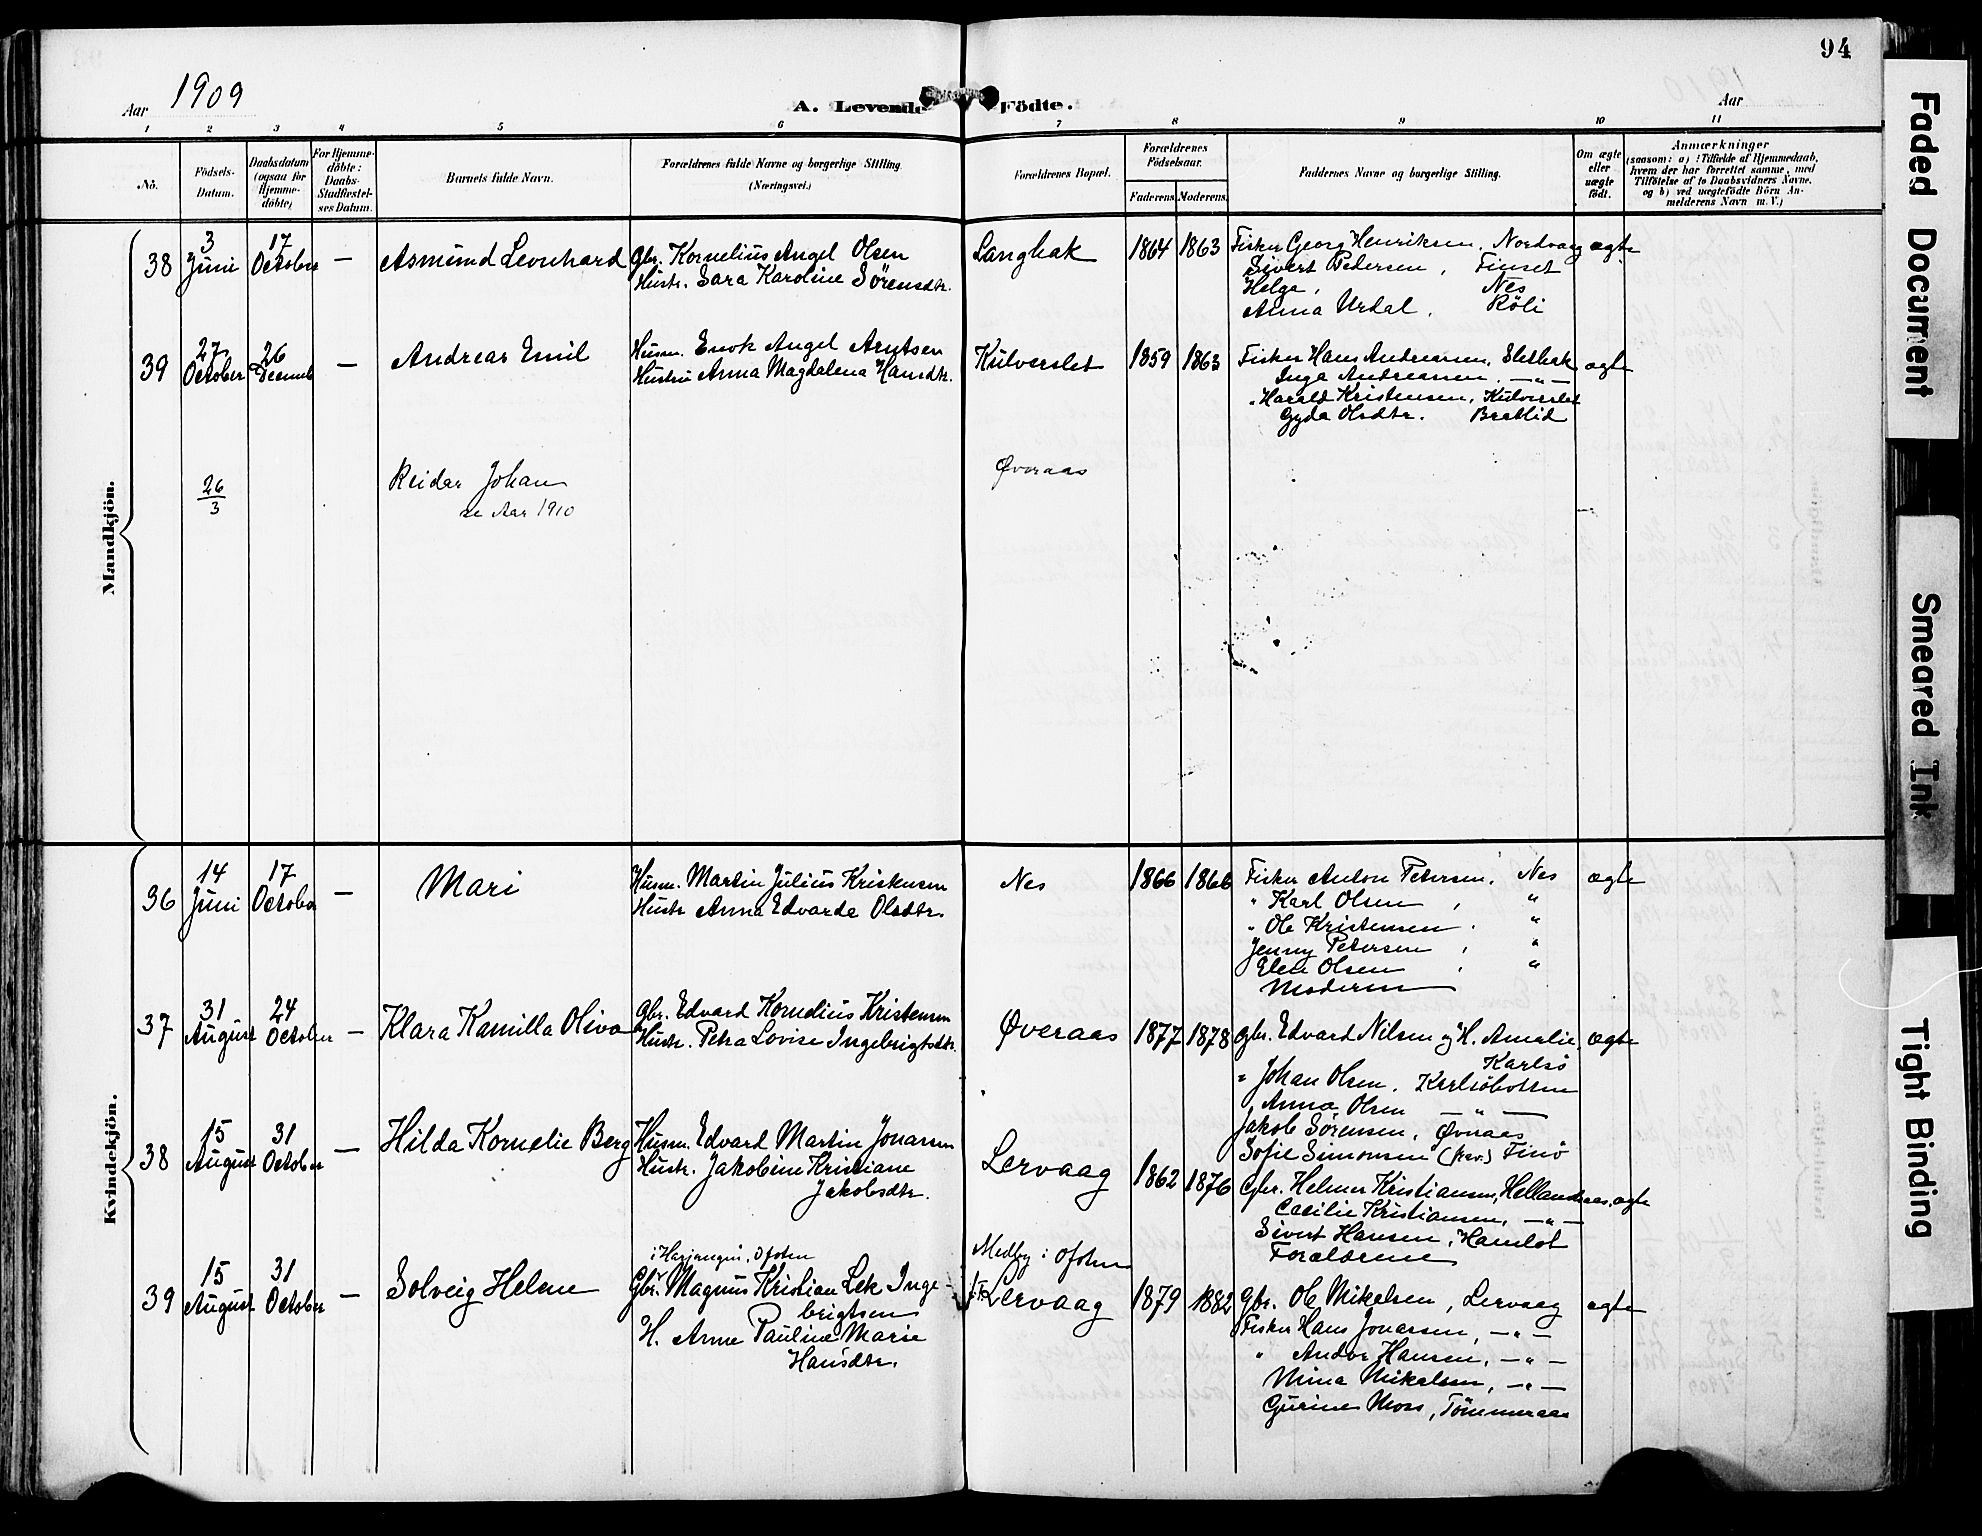 94
Aar 1909
A. Levende Födte.
Aar
1 2 3 4 5 6 7 8 9 10 11
No.
Födsels-
Datum.
Daabsdatum
(ogsaa for
Hjemme-
döbte)
For Hjemme-
döbte:
Daabs-
Stadfæstel-
ses Datum.
Barnets fulde Navn.
Forældrenes fulde Navne og borgerlige Stilling.
(Næringsvei.)
Forældrenes Bopæl.
Forældrenes
Födselsaar.
Faderens
Moderens
Faddernes Navne og borgerlige Stilling.
Om ægte
eller
uægte
födt.
Anmærkninger
(saasom: a) i Tilfælde af Hjemmedaab,
hvem der har forrettet samme, med
Tilföielse af to Daabsvidners Navne,
og b) ved uægtefödte Börn An-
melderens Navn m. V.)
Mandkjön.
38
3
Juni
17
October
—
Asmund Leonhard
Gbr. Kornelius Angel Olsen
Hustr. Sara Karoline Sörensdtr.
Langbak
1864
1863
Fisker Georg Henriksen, Nordvaag
Sivert Pedersen, Finset
Helga, Nes
Anna Urdal, Röli
ægte
39
27
October
26
Decemb
—
Andreas Emil
Husm. Enok Angel Arntsen
Hustru Anna Magdalena Hansdtr.
Kulverslet
1859
1863
Fisker Hans Andreassen, Sletbak
Inga Andreassen — " —
" Harald Kristensen, Kulverslet
Gyda Olsdtr. Bratlid
ægte
26
3
Reidar Johan
se Aar 1910
Øveraas
Kvindekjön.
36
14
Juni
17
October
—
Mari
Husm. Martin Julius Kristensen
Hustr Anna Edvarda Olsdtr.
Nes
1866
1866
Fisker Anton Petersen, Nes
" Karl Olsen, "
" Ole Kristensen, "
Jenny Petersen, "
Elen Olsen, "
Moderen
ægte
37
31
August
24
October
—
Klara Kamilla Oliva
Gbr. Edvard Kornelius Kristensen
Hustr. Petra Lovise Ingebrigtsdtr.
Øveraas
1877
1878
Gbr. Edvard Nilsen og H. Amalie,
Karlsö
" Johan Olsen, Karlsöbotten
Anna Olsen — " —
Jakob Sørensen, Øveraas
Sofie Simonsen Finö
ægte
38
15
August
31
October
—
Hilda Kornelie Berg
Husm. Edvard Martin Jonassen
Hustr. Jakobine Kristiane
Jakobsdtr.
Lervaag
1862
1876
Gbr. Helmer Kristiansen, Hellandsaas,
Cæcilie Kristiansen, — " —
Sivert Hansen, Hamlot
Forældrene
ægte
39
15
August
31
October
—
Solveig Helene
i Harjangen, Ofoten
Gbr. Magnus Kristian Lek Inge-
brigtsen
H. Anne Pauline Marie
Hansdtr.
Medby i Ofoten
Lervaag
1879
1882
Gbr. Ole Mikalsen, Lervaag
Fisker Hans Jonassen, — " —
" Andor Hansen, — " —
Mina Mikalsen, — " —
Gurine Moss, Tömmeraas
ægte
Faded Document
Smeared Ink
Tight Binding